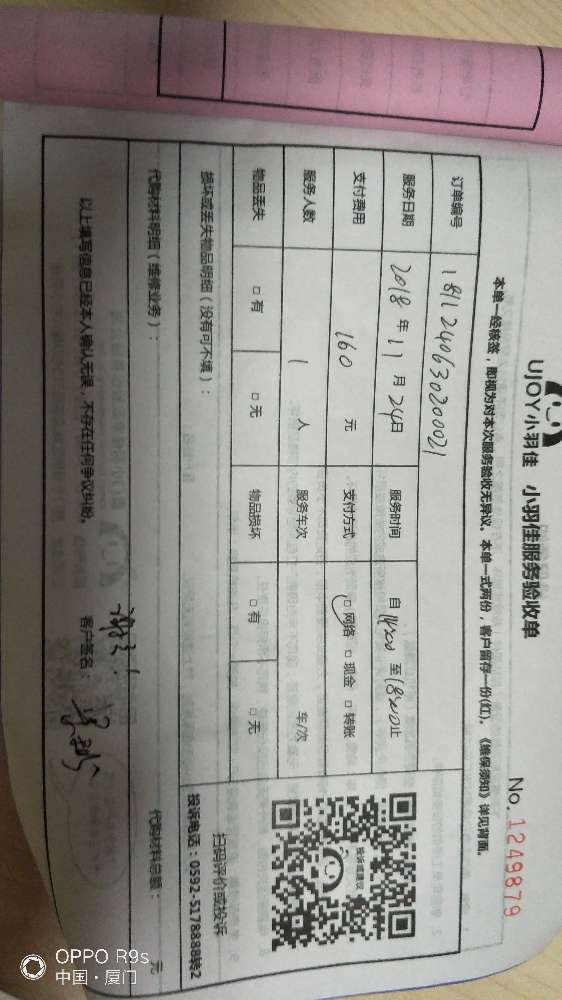 UJOY小羽佳 小羽佳服务验收单
No. 1249879
本单一经核签，即视为对本次服务验收无异议。本单一式两份，客户留存一份(红)。《维保须知》详见背面。
订单编号 1811240630200021
服务日期 2018年11月24日 服务时间 自14:00至18:00止
支付费用 160 元 支付方式 □网络 □现金 □转账
服务人数 1 人 服务车次 车/次
物品丢失 □有 □无 物品损坏 □有 □无
损坏或丢失物品明细（没有可不填）：
投诉或建议
扫码评价或投诉
投诉电话：0592-5178888转2
代购材料明细（维修业务）： 代购材料总额： 元
以上填写信息已经本人确认无误，不存在任何争议纠纷。 客户签名：
OPPO R9s
中国·厦门